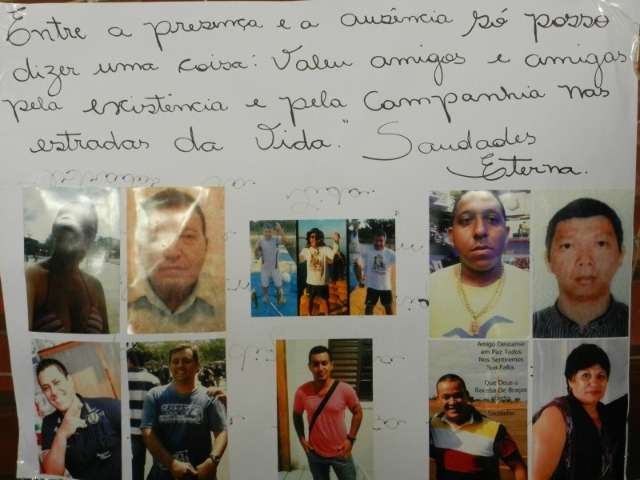 Entre a presença e a ausência só posso
dizer uma coisa: Valeu amigos e amigas
pela existência e pela Companhia nas
estradas da Vida." Saudades
Eterna.
Amigo Descanse
em Paz Todos
Nos Sentiremos
Sua Falta.
Que Deus o